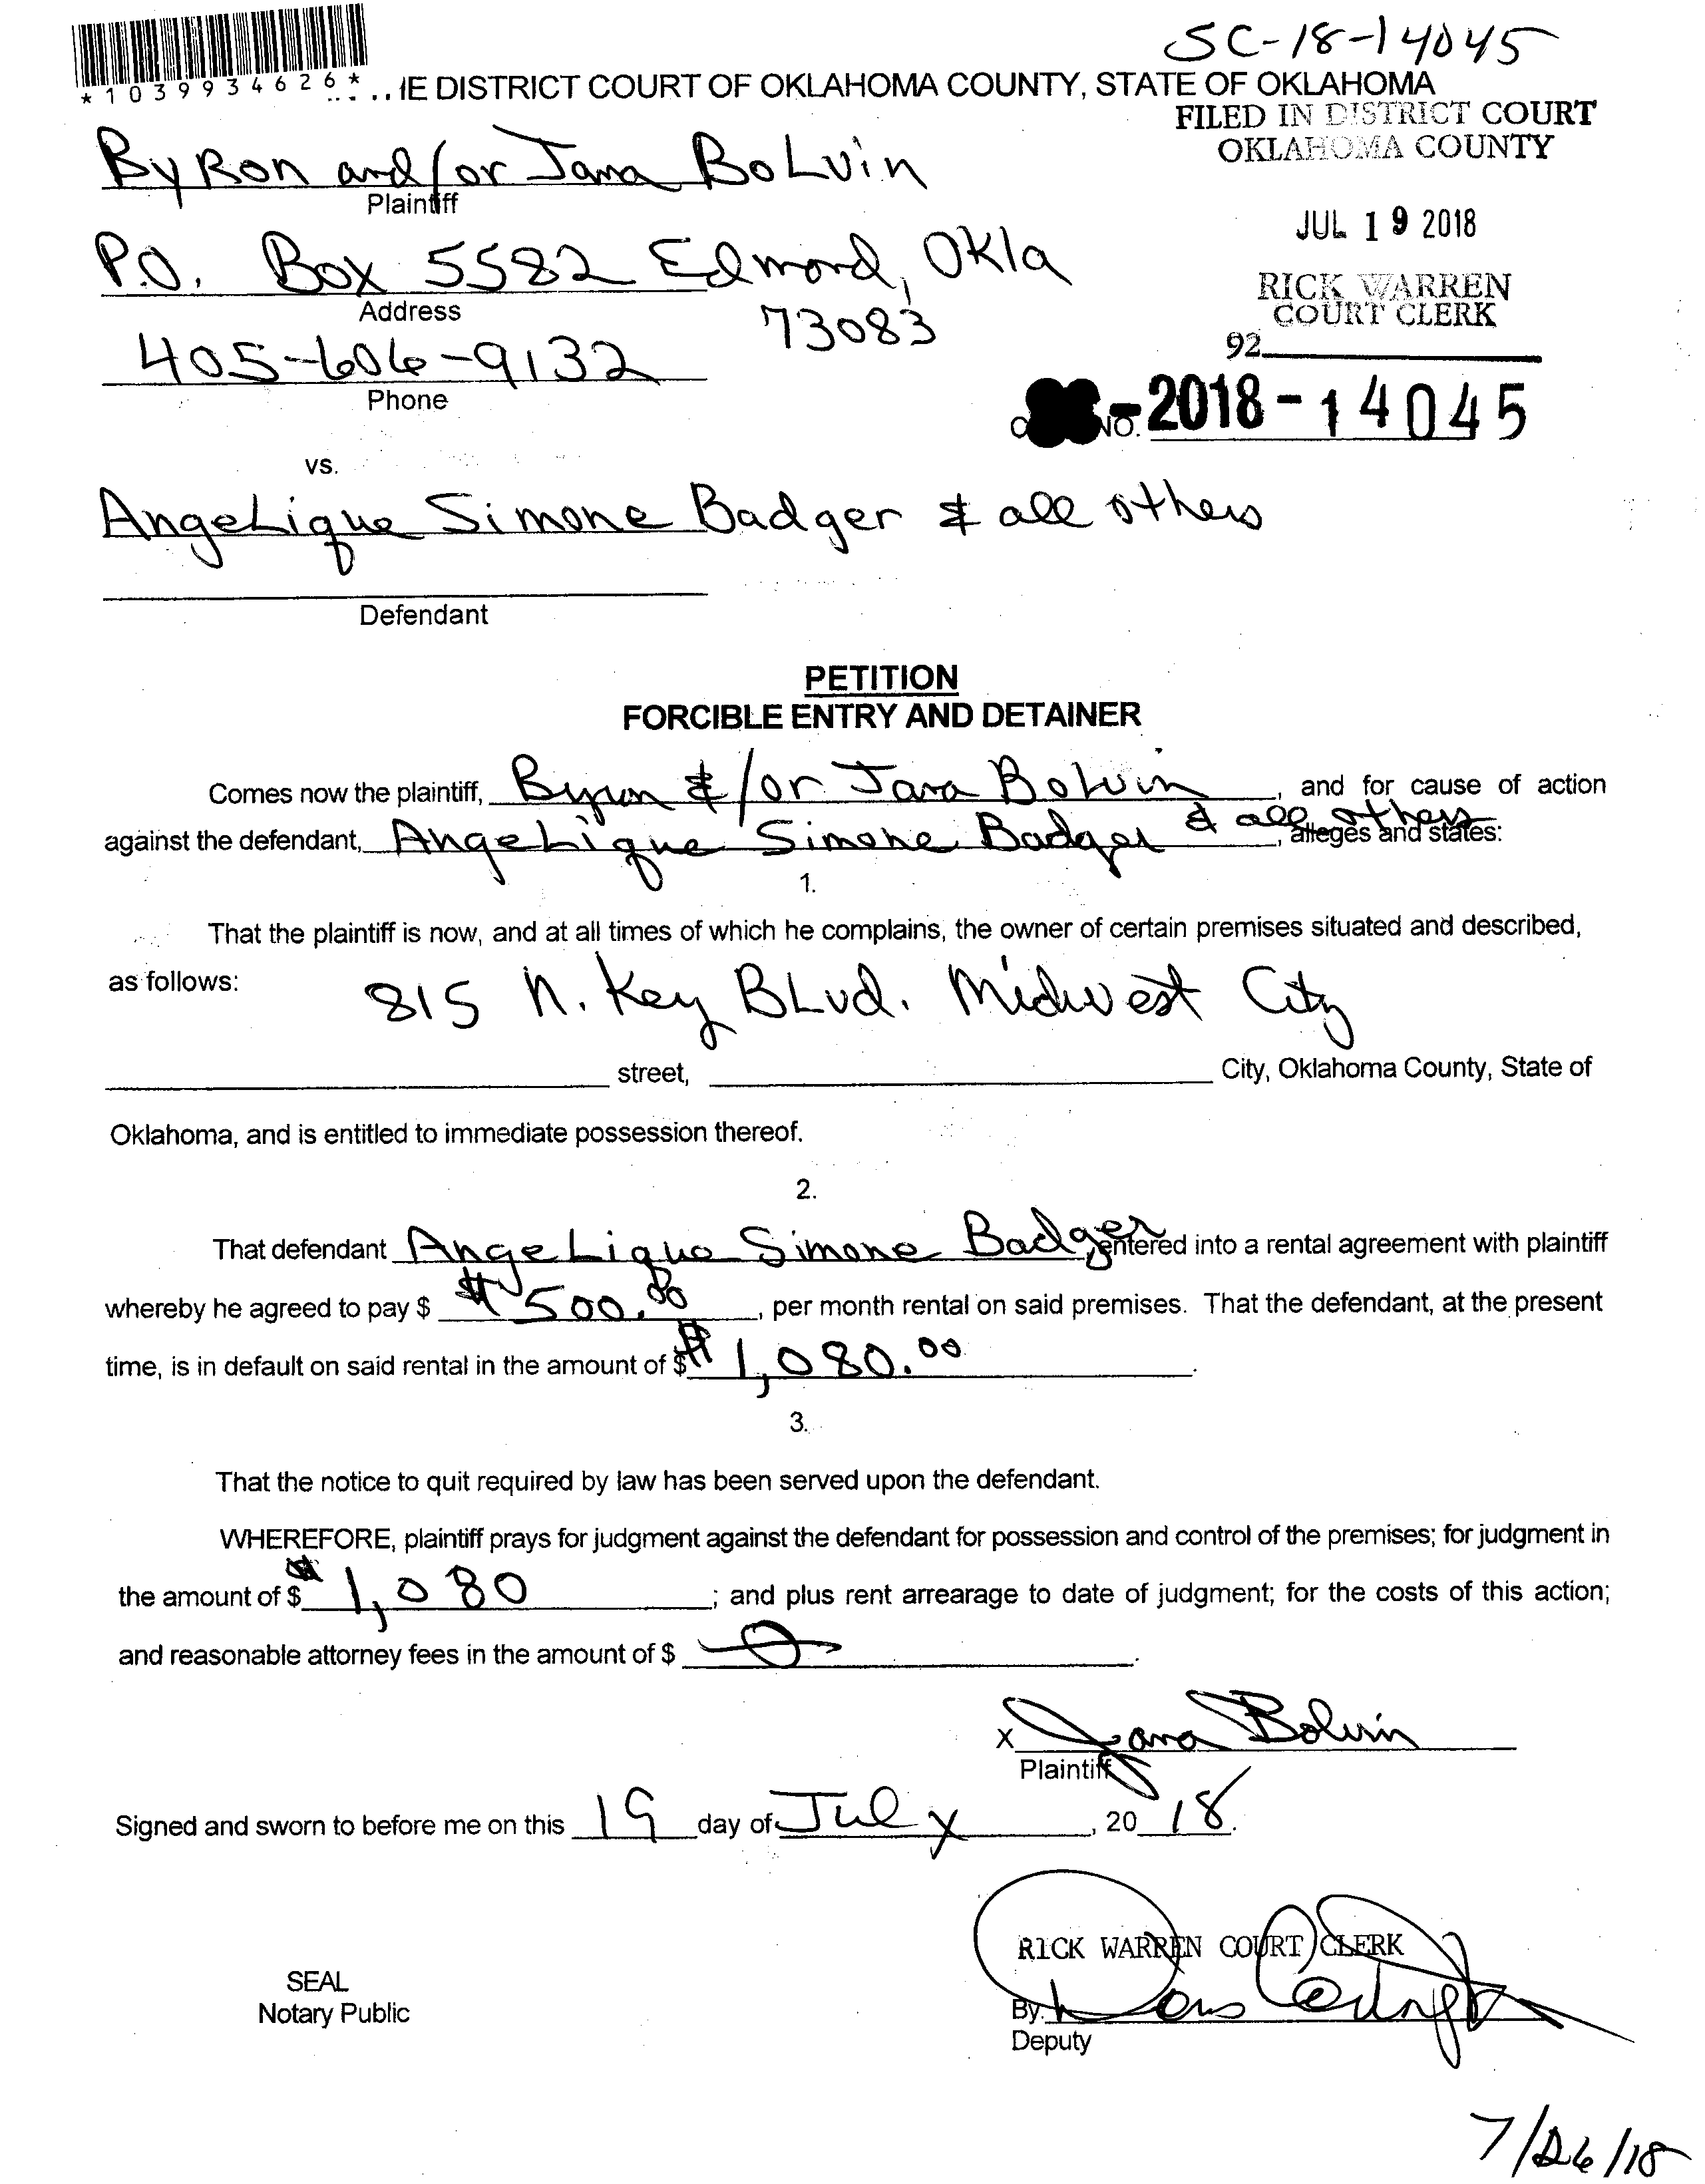 SC-18-14045
*1039934626*
IE DISTRICT COURT OF OKLAHOMA COUNTY, STATE OF OKLAHOMA
FILED IN DISTRICT COURT
OKLAHOMA COUNTY
ByRon and/or Jana BoLvin
Plaintiff
JUL 19 2018
P.O. Box 5582 Edmond, Okla
Address
73083
RICK WARREN
COURT CLERK
92
405-606-9132
Phone
NO. -2018-14045
vs.
AngeLique Simone Badger & all others
Defendant
PETITION
FORCIBLE ENTRY AND DETAINER
Comes now the plaintiff, Byron &/or Jana Bolvin, and for cause of action
against the defendant, AngeLique Simone Badger & all others, alleges and states:
1.
That the plaintiff is now, and at all times of which he complains, the owner of certain premises situated and described,
as follows: 815 N. Key BLvd. Midwest City
street, City, Oklahoma County, State of
Oklahoma, and is entitled to immediate possession thereof.
2.
That defendant AngeLique Simone Badger, entered into a rental agreement with plaintiff
whereby he agreed to pay $ $500.00, per month rental on said premises. That the defendant, at the present
time, is in default on said rental in the amount of $ $1,080.00.
3.
That the notice to quit required by law has been served upon the defendant.
WHEREFORE, plaintiff prays for judgment against the defendant for possession and control of the premises; for judgment in
the amount of $ $1,080; and plus rent arrearage to date of judgment; for the costs of this action;
and reasonable attorney fees in the amount of $ 0.
X Jana Bolvin
Plaintiff
Signed and sworn to before me on this 19 day of July, 20 18.
RICK WARREN COURT CLERK
SEAL
Notary Public
By
Deputy
7/26/18